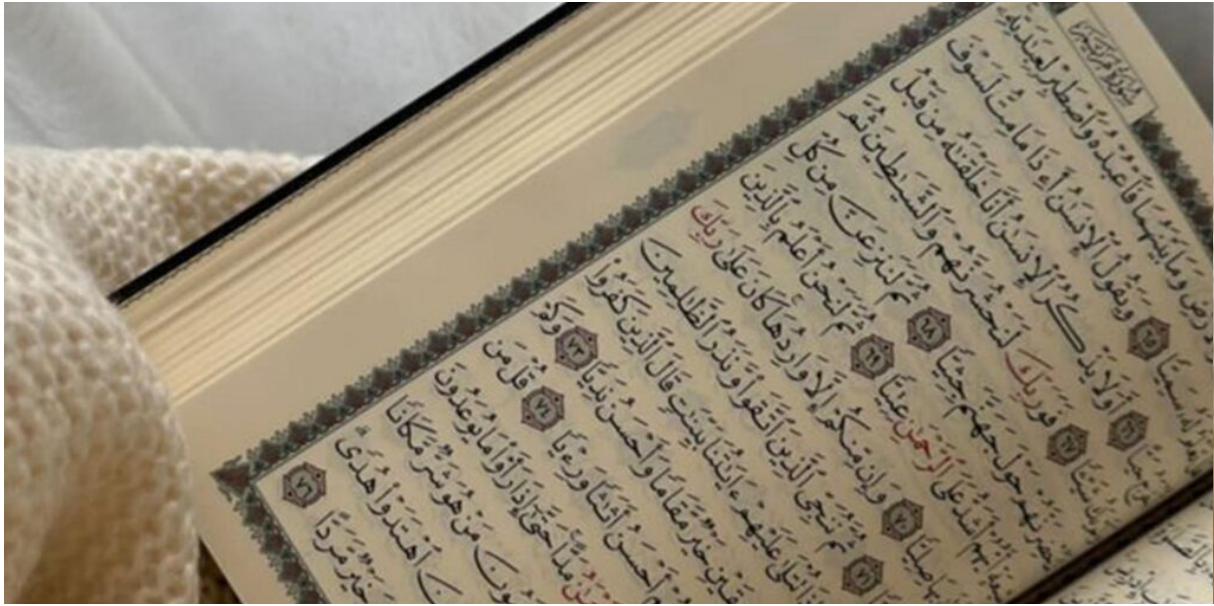 سُورَةُ مَرْيَمَ
وَمَا بَيْنَهُمَا فَٱعْبُدْهُ وَٱصْطَبِرْ لِعِبَٰدَتِهِۦ
سَمِيًّا ٦٥ وَيَقُولُ ٱلْإِنسَٰنُ أَءِذَا مَا مِتُّ لَسَوْفَ
حَيًّا ٦٦ أَوَلَا يَذْكُرُ ٱلْإِنسَٰنُ أَنَّا خَلَقْنَٰهُ مِن قَبْلُ
شَيْـًٔا ٦٧ فَوَرَبِّكَ لَنَحْشُرَنَّهُمْ وَٱلشَّيَٰطِينَ ثُمَّ
لَنُحْضِرَنَّهُمْ حَوْلَ جَهَنَّمَ جِثِيًّا ٦٨ ثُمَّ لَنَنزِعَنَّ مِن كُلِّ
أَيُّهُمْ أَشَدُّ عَلَى ٱلرَّحْمَٰنِ عِتِيًّا ٦٩ ثُمَّ لَنَحْنُ أَعْلَمُ بِٱلَّذِينَ
صِلِيًّا ٧٠ وَإِن مِّنكُمْ إِلَّا وَارِدُهَا كَانَ عَلَىٰ رَبِّكَ
٧١ ثُمَّ نُنَجِّي ٱلَّذِينَ ٱتَّقَوا۟ وَّنَذَرُ ٱلظَّٰلِمِينَ
تُتْلَىٰ عَلَيْهِمْ ءَايَٰتُنَا بَيِّنَٰتٍ قَالَ ٱلَّذِينَ كَفَرُوا۟
خَيْرٌ مَّقَامًا وَأَحْسَنُ نَدِيًّا ٧٣ وَكَمْ
أَحْسَنُ أَثَٰثًا وَرِءْيًا ٧٤ قُلْ مَن
مَدًّا حَتَّىٰٓ إِذَا رَأَوْا۟ مَا يُوعَدُونَ
مَنْ هُوَ شَرٌّ مَّكَانًا
ٱهْتَدَوْا۟ هُدًى
خَيْرٌ مَّرَدًّا ٧٦